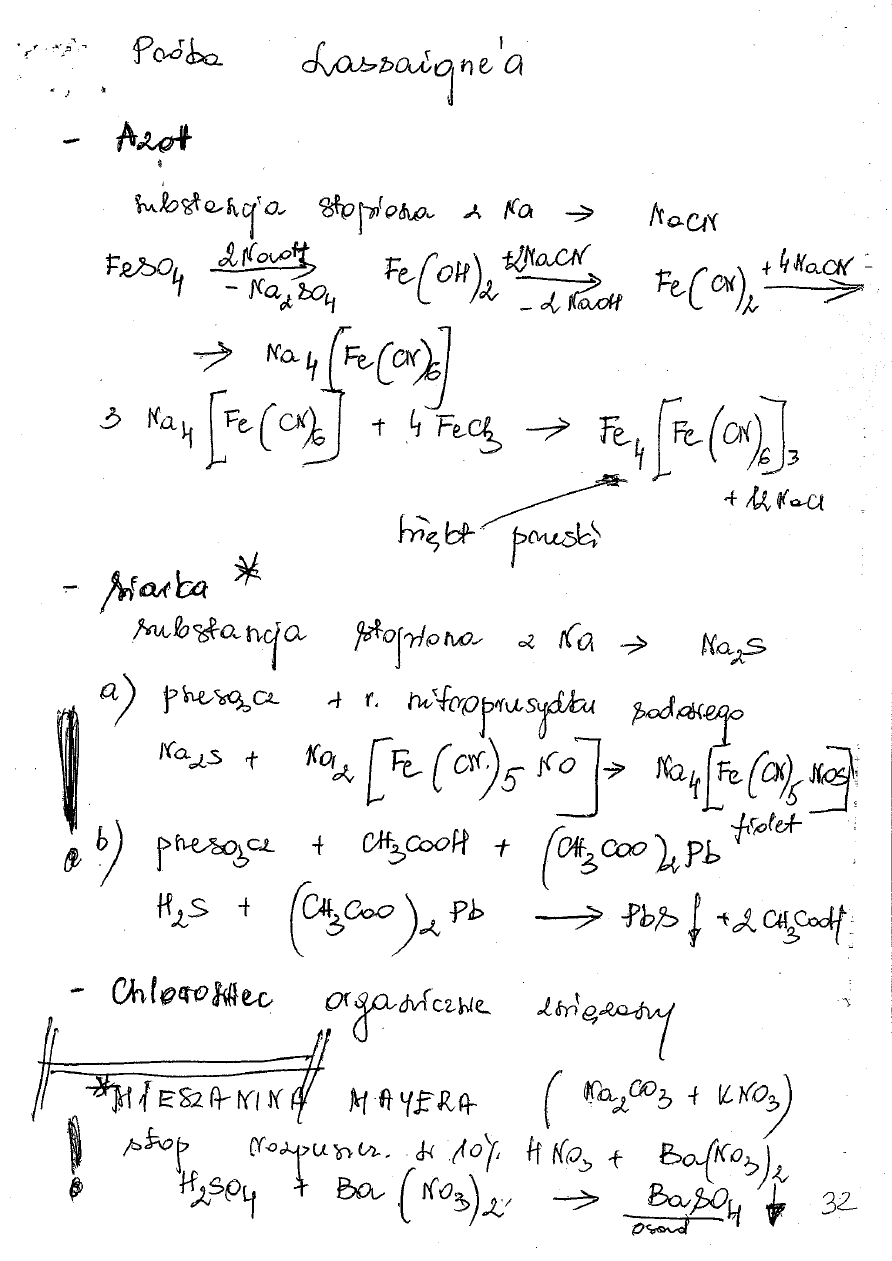 Próba Lassaigne'a
- Azot
substancja stopiona z Na → NaCN
FeSO4 2NaOH → - Na2SO4 Fe(OH)2 +2NaCN → - 2 NaOH Fe(CN)2 + 4NaCN →
→ Na4[Fe(CN)6]
3 Na4[Fe(CN)6] + 4 FeCl3 → Fe4[Fe(CN)6]3
+ 12 NaCl
błękit pruski
- siarka *
substancja stopiona z Na → Na2S
a) przesącz + r. nitroprusydku sodowego
Na2S + Na2[Fe(CN)5 NO] → Na4[Fe(CN)5 NOS]
fiolet
b) przesącz + CH3COOH + (CH3COO)2 Pb
H2S + (CH3COO)2 Pb → PbS↓ + 2 CH3COOH
- Chlorowiec organicznie związany
* MIESZANINA MAYERA (Na2CO3 + KNO3)
! stop rozpuszcz. w 10% HNO3 + Ba(NO3)2
H2SO4 + Ba(NO3)2 → BaSO4 ↓
osad
32